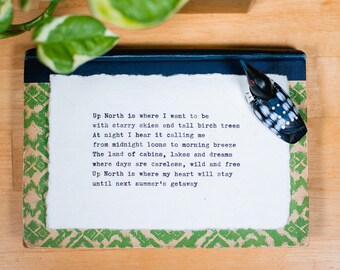 Up North is where I want to be
with starry skies and tall birch trees
At night I hear it calling me
from midnight loons to morning breeze
The land of cabins, lakes and dreams
where days are careless, wild and free
Up North is where my heart will stay
until next summer's getaway